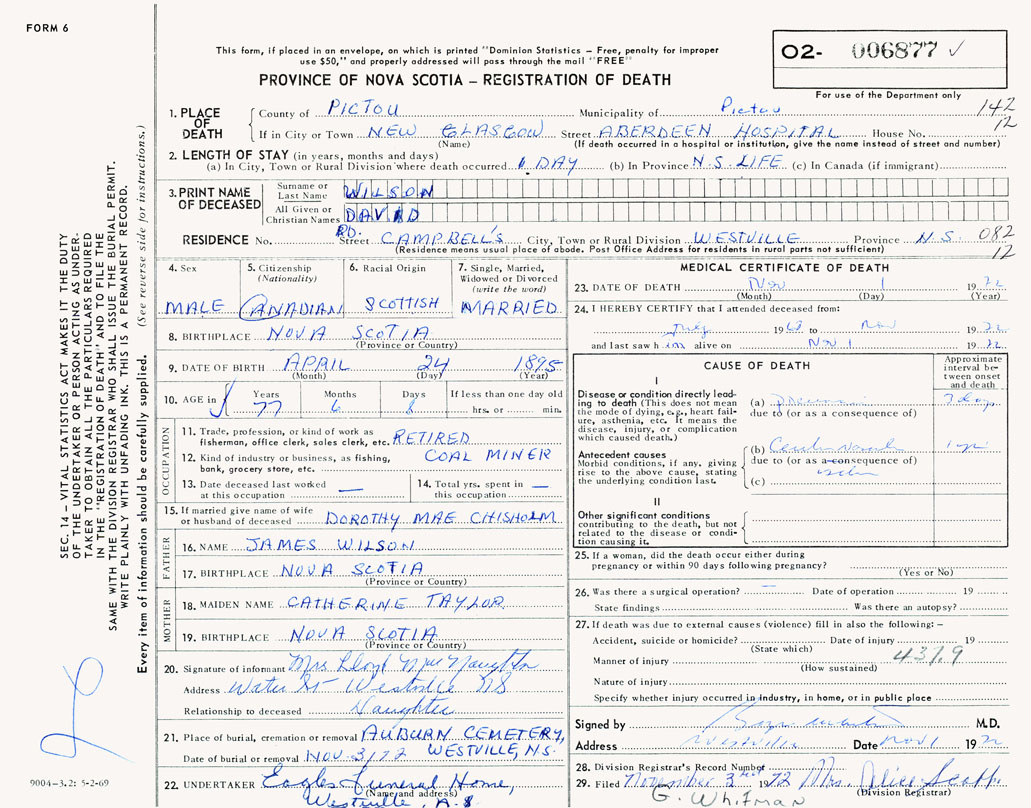 FORM 6
This form, if placed in an envelope, on which is printed "Dominion Statistics – Free, penalty for improper
use $50," and properly addressed will pass through the mail "FREE"
PROVINCE OF NOVA SCOTIA – REGISTRATION OF DEATH
O2- 006877 ✓
For use of the Department only
142
12
SEC. 14 – VITAL STATISTICS ACT MAKES IT THE DUTY
OF THE UNDERTAKER OR PERSON ACTING AS UNDER-
TAKER TO OBTAIN ALL THE PARTICULARS REQUIRED
IN THE "REGISTRATION OF DEATH" AND TO FILE THE
SAME WITH THE DIVISION REGISTRAR WHO SHALL ISSUE THE BURIAL PERMIT.
WRITE PLAINLY WITH UNFADING INK. THIS IS A PERMANENT RECORD.
Every item of information should be carefully supplied. (See reverse side for instructions.)
1. PLACE OF DEATH
County of PICTOU Municipality of Pictou
If in City or Town NEW GLASGOW Street ABERDEEN HOSPITAL House No.
(Name) (If death occurred in a hospital or institution, give the name instead of street and number)
2. LENGTH OF STAY (in years, months and days)
(a) In City, Town or Rural Division where death occurred 1 DAY (b) In Province N.S. LIFE (c) In Canada (if immigrant)
3. PRINT NAME OF DECEASED
Surname or Last Name WILSON
All Given or Christian Names DAVID
RESIDENCE No. Street CAMPBELL'S RD. City, Town or Rural Division WESTVILLE Province N.S.
082
12
(Residence means usual place of abode. Post Office Address for residents in rural parts not sufficient)
4. Sex MALE
5. Citizenship (Nationality) CANADIAN
6. Racial Origin SCOTTISH
7. Single, Married, Widowed or Divorced (write the word) MARRIED
8. BIRTHPLACE NOVA SCOTIA
(Province or Country)
9. DATE OF BIRTH APRIL 24 1895
(Month) (Day) (Year)
10. AGE in Years 77 Months 6 Days 8 If less than one day old hrs. or min.
OCCUPATION
11. Trade, profession, or kind of work as fisherman, office clerk, sales clerk, etc. RETIRED
12. Kind of industry or business, as fishing, bank, grocery store, etc. COAL MINER
13. Date deceased last worked at this occupation —
14. Total yrs. spent in this occupation —
15. If married give name of wife or husband of deceased DOROTHY MAE CHISHOLM
FATHER
16. NAME JAMES WILSON
17. BIRTHPLACE NOVA SCOTIA
(Province or Country)
MOTHER
18. MAIDEN NAME CATHERINE TAYLOR
19. BIRTHPLACE NOVA SCOTIA
(Province or Country)
20. Signature of informant Mrs Lloyd MacNaughton
Address Water St Westville NS
Relationship to deceased Daughter
21. Place of burial, cremation or removal AUBURN CEMETERY,
WESTVILLE, N.S.
Date of burial or removal NOV. 3/72
22. UNDERTAKER Eagles Funeral Home,
(Name and address)
Westville, N.S.
9004-3.2: 5-2-69
MEDICAL CERTIFICATE OF DEATH
23. DATE OF DEATH Nov 1 1972
(Month) (Day) (Year)
24. I HEREBY CERTIFY that I attended deceased from:
July 1968 to Nov 1972
and last saw him alive on Nov 1 1972
CAUSE OF DEATH
Approximate interval between onset and death
I
Disease or condition directly leading to death (This does not mean the mode of dying, e.g., heart failure, asthenia, etc. It means the disease, injury, or complication which caused death.)
(a) 7 days
due to (or as a consequence of)
Antecedent causes
Morbid conditions, if any, giving rise to the above cause, stating the underlying condition last.
(b)
due to (or as a consequence of)
(c)
II
Other significant conditions
contributing to the death, but not related to the disease or condition causing it.
25. If a woman, did the death occur either during
pregnancy or within 90 days following pregnancy?
(Yes or No)
26. Was there a surgical operation? — Date of operation 19
State findings Was there an autopsy?
27. If death was due to external causes (violence) fill in also the following: –
Accident, suicide or homicide? Date of injury 19
(State which)
Manner of injury 437.9
(How sustained)
Nature of injury
Specify whether injury occurred in Industry, in home, or in public place
Signed by M.D.
Address Westville Date Nov 1 1972
28. Division Registrar's Record Number
29. Filed November 3rd 1972 Mrs. Alice Scott
(Division Registrar)
G. Whitman